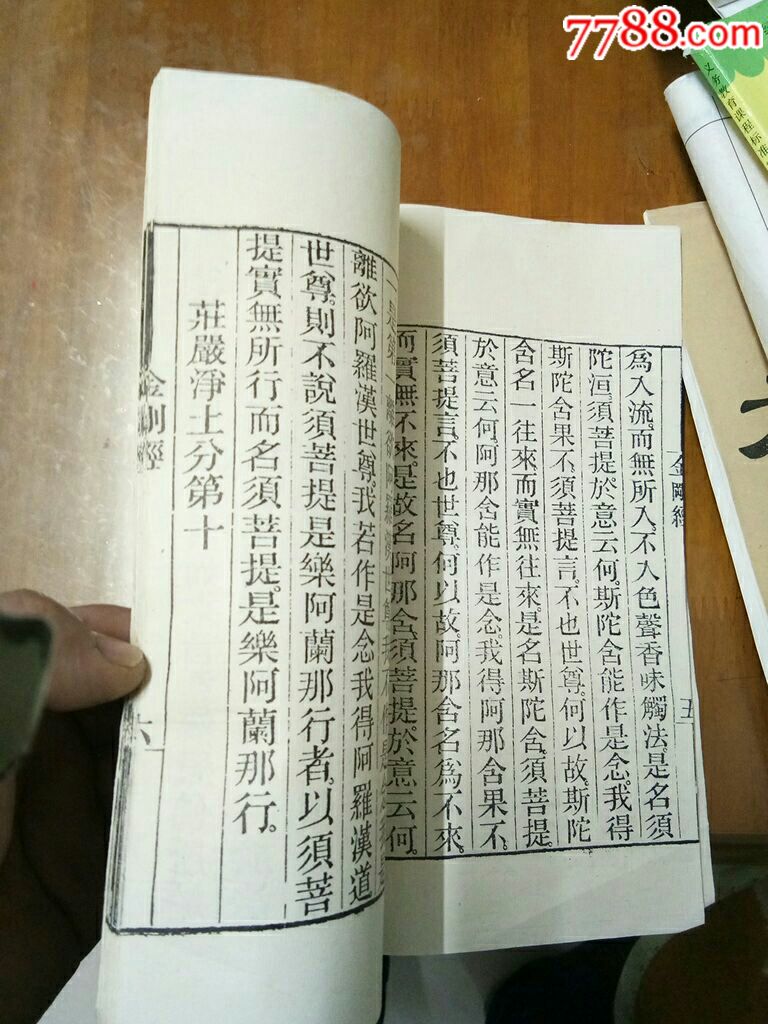 7788.com
义务教育课程标准
金剛經
五
為入流。而無所入。不入色聲香味觸法。是名須
陀洹。須菩提。於意云何。斯陀含能作是念。我得
斯陀含果不。須菩提言。不也世尊。何以故。斯陀
含名一往來。而實無往來。是名斯陀含。須菩提。
於意云何。阿那含能作是念。我得阿那含果不。
須菩提言。不也世尊。何以故。阿那含名為不來。
而實無不來。是故名阿那含。須菩提。於意云何。
離欲阿羅漢世尊。我若作是念。我得阿羅漢道
世尊。則不說須菩提是樂阿蘭那行者。以須菩
提實無所行。而名須菩提。是樂阿蘭那行。
莊嚴淨土分第十
金剛經
六